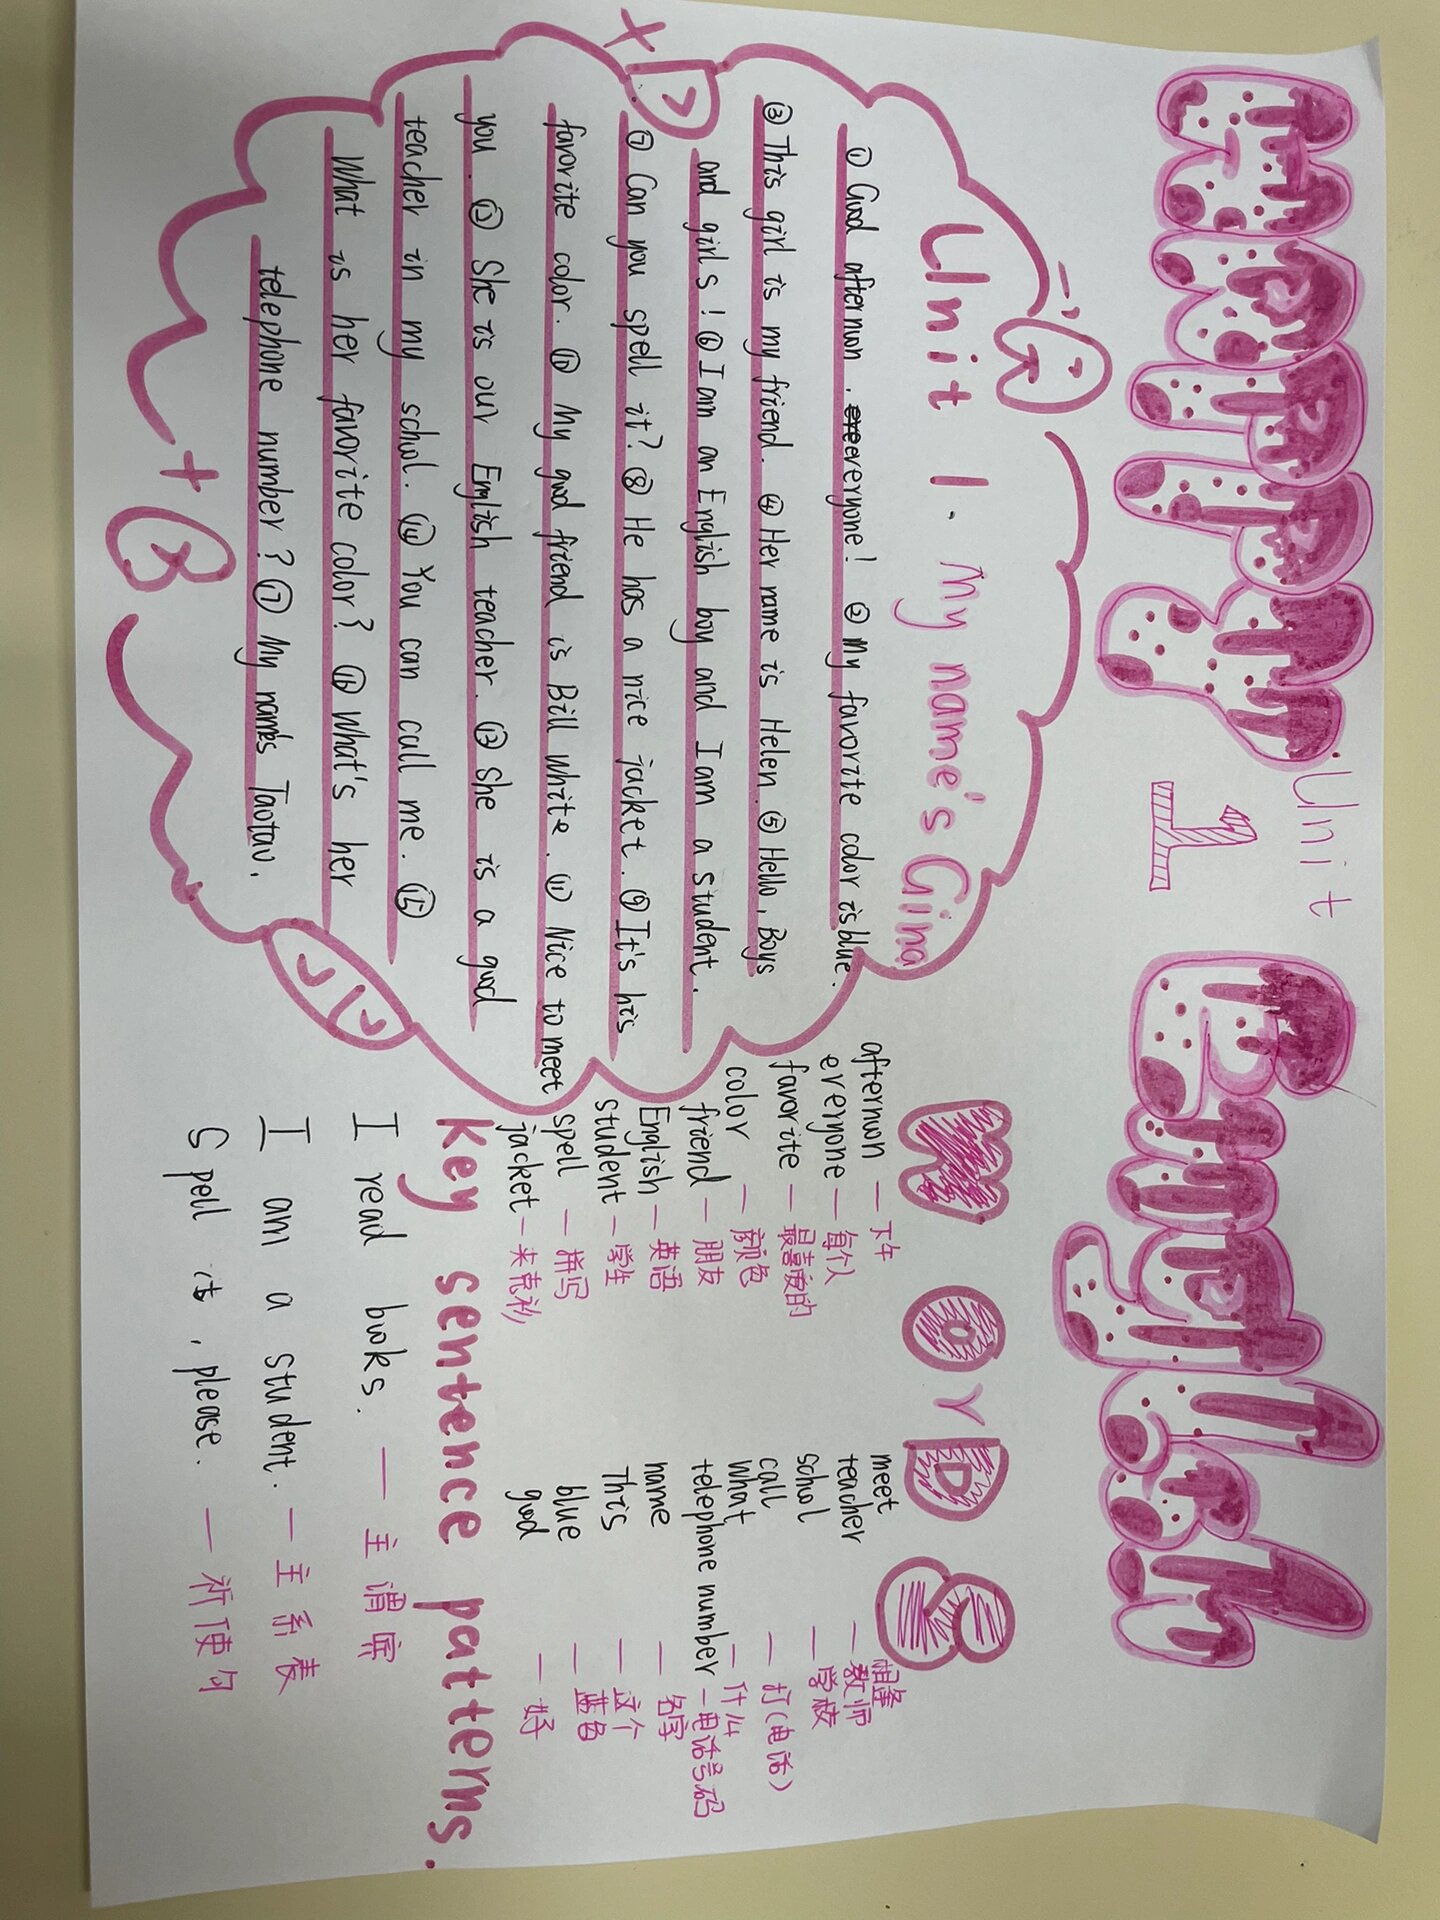 HAPPY Unit 1 English
Unit 1. My name's Gina
① Good afternoon. everyone! ② My favorite color is blue.
③ This girl is my friend. ④ Her name is Helen. ⑤ Hello, Boys
and girls! ⑥ I am an English boy and I am a student.
⑦ Can you spell it? ⑧ He has a nice jacket. ⑨ It's his
favorite color. ⑩ My good friend is Bill White. ⑪ Nice to meet
you. ⑫ She is our English teacher. ⑬ She is a good
teacher in my school. ⑭ You can call me. ⑮
What is her favorite color? ⑯ What's her
telephone number? ⑰ My name's Taotao.
WOrDS
afternoon — 下午
everyone — 每个人
favorite — 最喜爱的
color — 颜色
friend — 朋友
English — 英语
student — 学生
spell — 拼写
jacket — 夹克衫
meet — 相逢
teacher — 教师
school — 学校
call — 打(电话)
what — 什么
telephone number — 电话号码
name — 名字
This — 这个
blue — 蓝色
good — 好
key sentence patterns.
I read books. — 主谓宾
I am a student. — 主系表
Spell it, please. — 祈使句